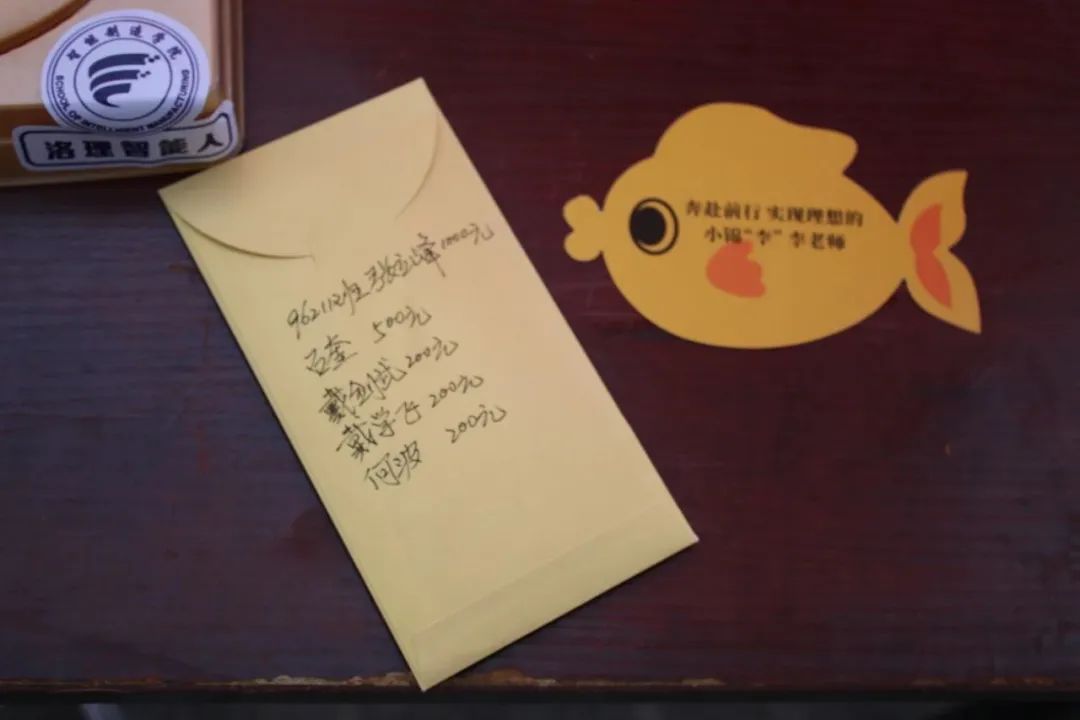 智能制造学院
SCHOOL OF INTELLIGENT MANUFACTURING
洛理智能人
96211班 张 峰 1000元
石奎 500元
戴 斌 200元
戴学飞 200元
何波 200元
奔赴前行 实现理想的
小锦“李”李老师